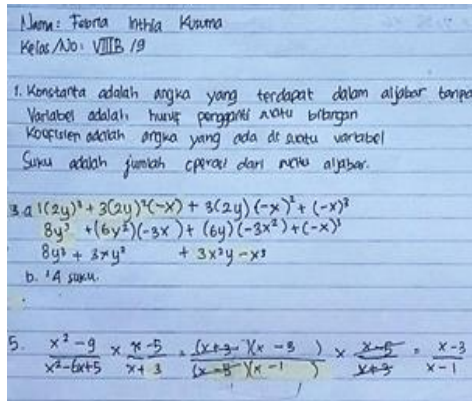 Nama : Febria Inthia Kusuma
Kelas/No : VIIIB /9
1. Konstanta adalah angka yang terdapat dalam aljabar tanpa
Variabel adalah huruf pengganti suatu bilangan
Koefisien adalah angka yang ada di suatu variabel
Suku adalah jumlah operasi dari suatu aljabar.
3.a 1(2y)³ + 3(2y)²(-x) + 3(2y)(-x)² + (-x)³
8y³ + (6y²)(-3x) + (6y)(-3x²) + (-x)³
8y³ + 3xy² + 3x²y - x³
b. 4 suku.
5. x² - 9 / x² - 6x + 5 × x - 5 / x + 3 = (x+3)(x - 3) / (x - 5)(x - 1) × x - 5 / x + 3 = x - 3 / x - 1